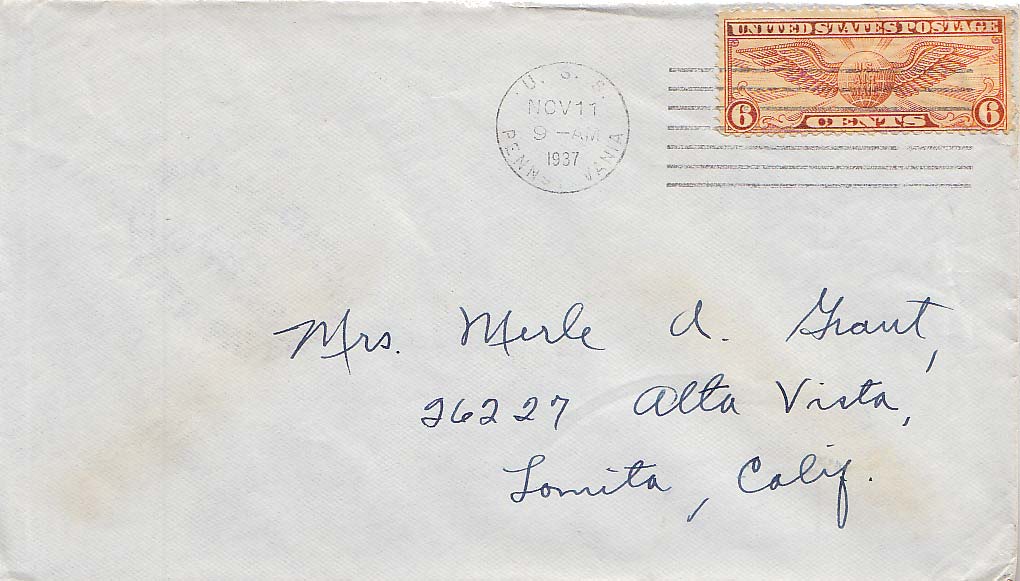 UNITED STATES POSTAGE
U.S.
AIR
MAIL
6 CENTS 6
U. S. S.
NOV 11
9 - AM
1937
PENNS VANIA
Mrs. Merle A. Grant,
26227 Alta Vista,
Lomita, Calif.